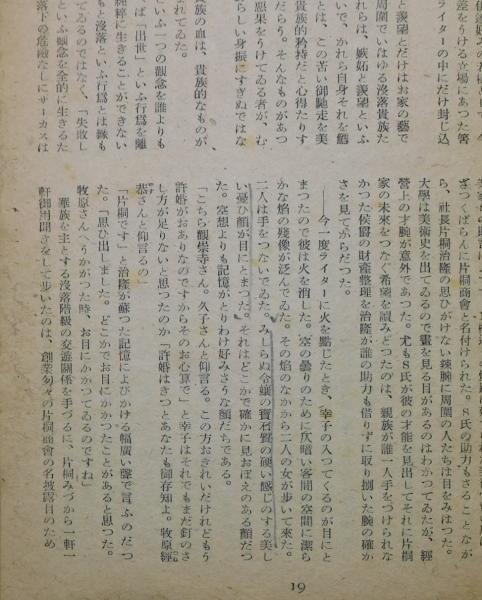 をうける立場にあつた筈
ライターの中にだけ封じ込
と羨望とだけはお家の藝で
周圍で、いはゆる沒落貴族た
れらは、嫉妬と羨望といふ
いで、かれら自身それを
とは、この苦い御馳走を美
貴族的矜恃だと心得たりす
だらう。そんなものがあつ
惡果をうけてゐる者が、む
らしい身振にすぎぬではな
れてゐた。
族の血は、貴族的なものが
いふ一つの觀念を誰よりも
ば「出世」といふ行爲を離
純粹に生きることができない
もと沒落といふ行爲とは縁も
てゐるのではなく、「失敗し
いふ觀念を全的に生きるた
落下の危險なしにサーカスは
ざつくばらんに片桐商會と名付けられた。S氏の助力もさることなが
ら、社長片桐治隆の思ひがけない辣腕に周圍の人たちは目をみはつた。
大學は美術史を出てゐるので畫を見る目があるのはわかつてゐたが、經
營上の才腕が意外であつた。尤もS氏が彼の才能を見出してそれに片桐
家の未來をつなぐ希望を讀みとつたのは、親族が誰一人手をつけられな
かつた侯爵の財産整理を治隆が誰の助力も借りずに取り捌いた腕の確か
さを見てからだつた。
――今一度ライターに火を點じたとき、幸子の入つてくるのが目にと
まつたので彼は火を消した。空の曇りのために仄暗い客間の空間に潔ら
かな焰の殘像が泛んでゐた。その焰のなかから二人の女が歩いて來た。
二人は手をつないでゐた。みしらぬ令孃の寶石質の硬い感じのする美し
い憂ひ顏が目にとまつた。それはどこかで確かに見おぼえのある顏だつ
た。空想よりも記憶がとりわけ好みさうな顏だちである。
「こちら觀崇寺さん。久子さんと仰言る。この方おきれいだけれどもう
許婚がおありなのですからそのお心算で」と幸子はそれでもまだ釘のさ
し方が足りないと思つたのか「許婚はきつとあなたも御存知よ。牧原經
恭さんと仰言るの」
「片桐です」と治隆が蘇つた記憶によびかける幅廣い聲で言ふのだつ
た。「思ひ出しました。どこかでお目にかかつたことがあると思つた。
牧原さんへうかがつた時、お目にかかつてゐるのですね」
華族を主とする沒落階級の交遊關係を手づるに、片桐みづから一軒一
軒御用聞きをして歩いたのは、創業匆々の片桐商會の名披露目のため
19